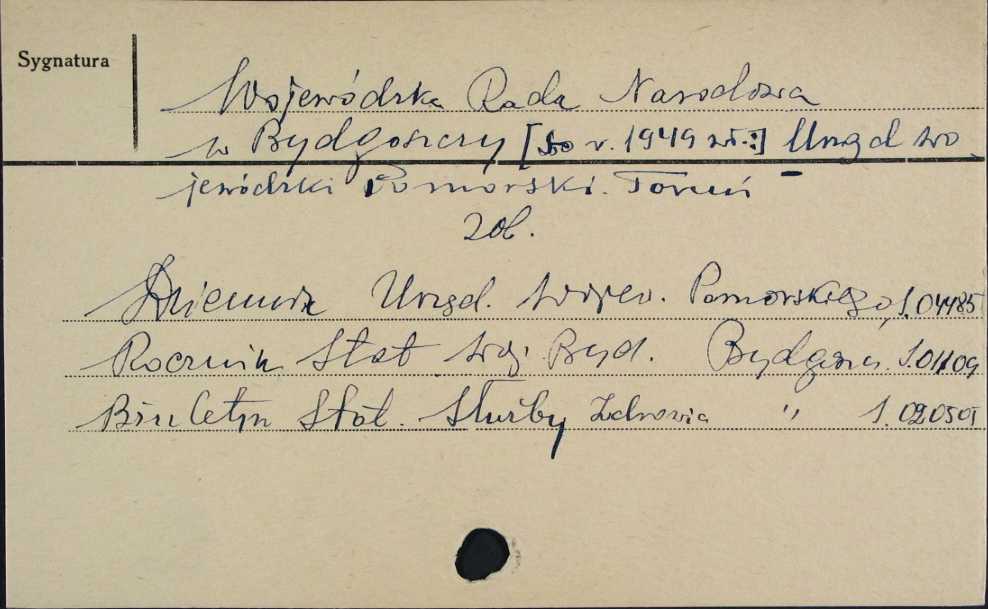 Sygnatura
Wojewódzka Rada Narodowa
w Bydgoszczy [do r. 1949 wł.:] Urząd wo
jewódzki Pomorski. Toruń
zob.
Dziennik Urzęd. Wojew. Pomorskiego, S.04485
Rocznik Stat. woj. Byd. Bydgoszcz. S.01109
Biuletyn Stat. Służby Zdrowia " S.020501